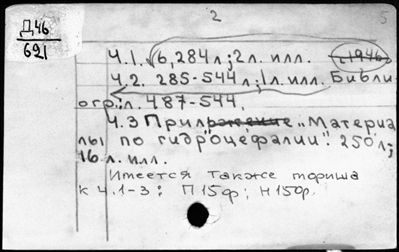 2
5
Д46
691
Ч.1. 6,284л; 2л. илл. с.1946
Ч.2. 285-544л; 1л. илл. Библи-
огр: л. 487-544.
Ч.3 Приложение „Материа
лы по гидроцефалии". 250л;
16 л. илл.
Имеется также
к ч.1-3: П15ф; Н150р.